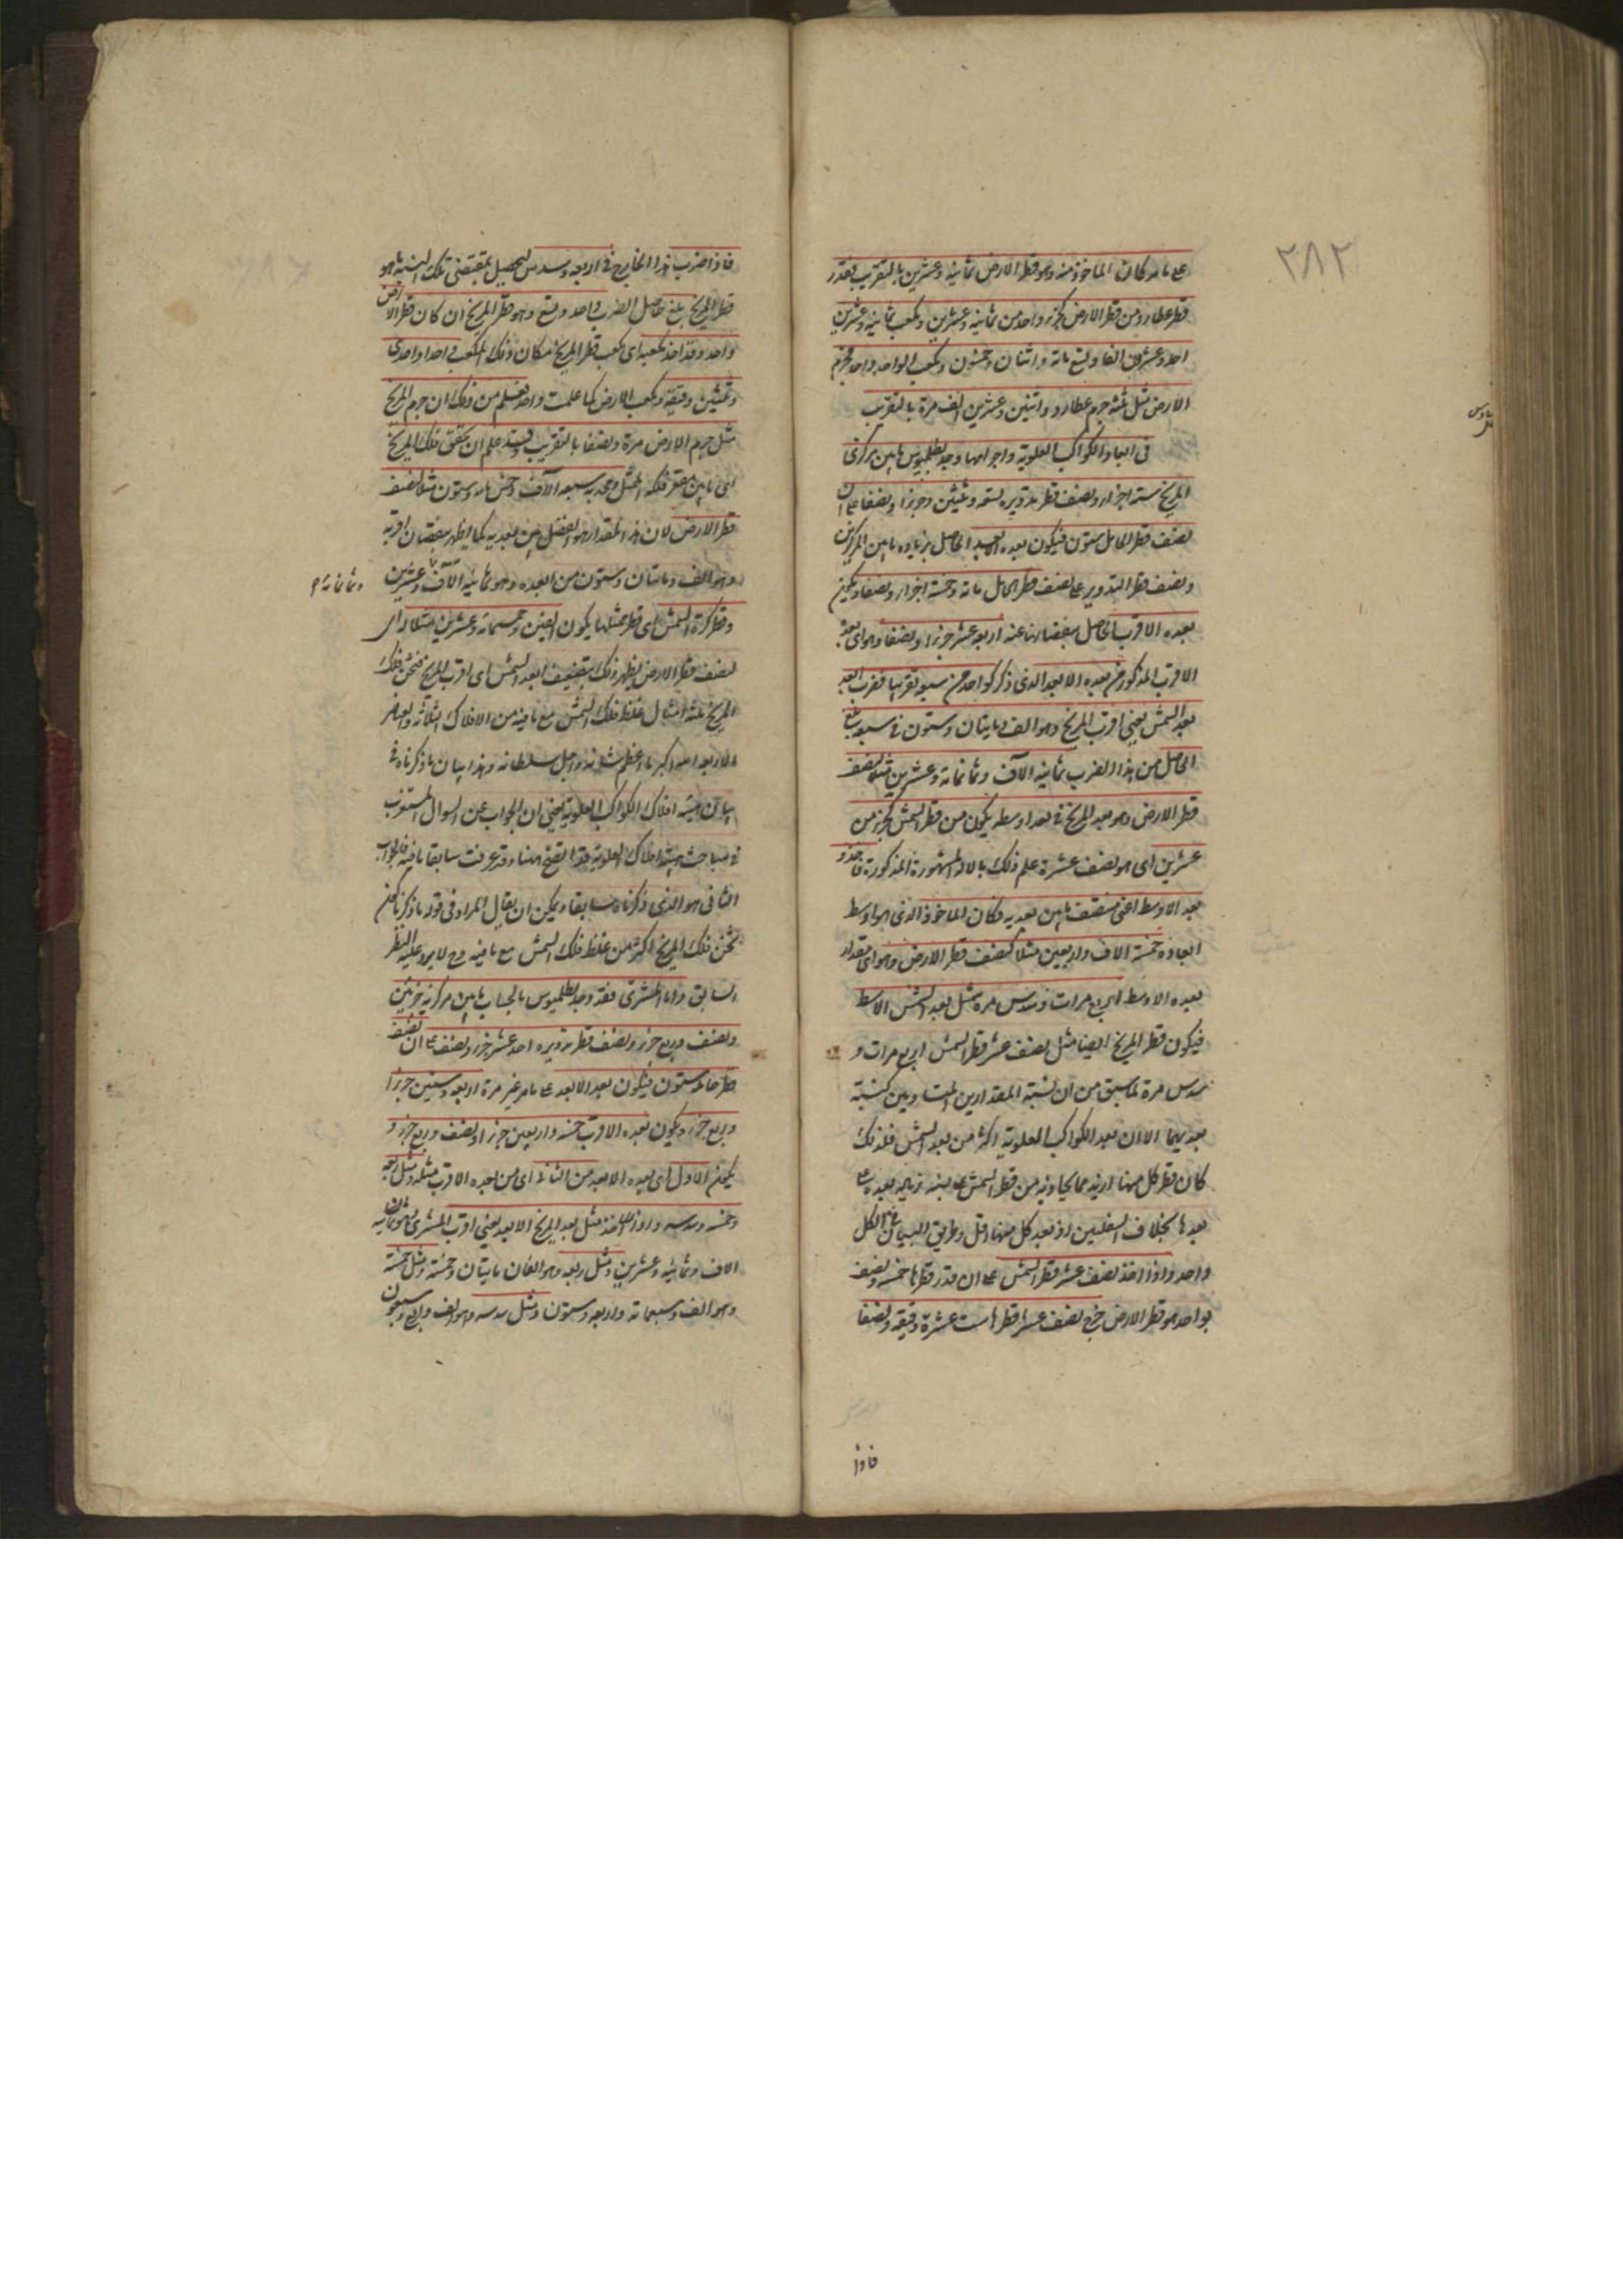 ٢٨٢
على ما مر كان الماخوذ منه وهو قطر الارض ثمانية وعشرين بالتقريب فقدر
قطر عطارد من قطر الارض كجزء واحد من ثمانية وعشرين ومكعب ثمانية وعشرين
احد وعشرون الفا وتسع مائة واثنان وخمسون ومكعب الواحد واحد فجرم
الارض مثل جرم عطارد واثنين وعشرين الف مرة بالتقريب
في ابعاد الكواكب العلوية واجرامها وجد بطلميوس ما بين مركزي
المريخ ستة اجزاء ونصف قطر تدويره تسعة وثلثين وجزءا ونصفا على ان
نصف قطر الحامل ستون فيكون بعده الابعد الحاصل بزيادة ما بين المركزين
ونصف قطر التدوير على نصف قطر الحامل مائة وخمسة اجزاء ونصفا ويكون
بعده الاقرب الحاصل بنقصانها عنه اربعة عشر جزءا ونصفا وهو اي بعده
الاقرب المذكور من بعده الابعد الذي ذكر كواحد من سبعة تقريبا فضرب ابعد
بعد الشمس يعني اقرب المريخ وهو الف ومايتان وستون في سبعة بلغ
الحاصل من هذا الضرب ثمانية الاف وثمانمائة وعشرين مثلا لنصف
قطر الارض وهو بعد المريخ في بعد اوسطه يكون من قطر الشمس كجزء من
عشرين اي هو نصف عشره علم ذلك بالالة المشهورة المذكورة فاخذ و
بعد الاوسط اعني منتصف ما بين بعديه فكان الماخوذ الذي هو اوسط
ابعاده خمسة الاف واربعين مثلا كنصف قطر الارض وهو اي مقدار
بعده الاوسط اربع مرات وسدس مرة مثل بعد الشمس الاوسط
فيكون قطر المريخ ايضا مثل نصف عشر قطر الشمس اربع مرات و
سدس مرة لما سبق من ان نسبة المقدارين المتساويين كنسبة
بعديهما الا ان بعد الكواكب العلوية اكثر من بعد الشمس فلذلك
كان قطر كل منها ازيد مما يحاذيه من قطر الشمس على نسبة زيادة بعده على
بعدها بخلاف السفليين اذ بعد كل منهما اقل وطريق البيان في الكل
واحد واذا اخذ نصف عشر قطر الشمس على ان قدر قطرها خمسة ونصف
بواحد هو قطر الارض خرج نصف عشر قطرها ست عشرة دقيقة ونصفا
فاذا
فاذا ضرب هذا الخارج في اربعة وسدس ليحصل بمقتضى تلك النسبة ما هو
قطر المريخ بلغ حاصل الضرب واحد وتسع وهو قطر المريخ ان كان قطر الارض
واحد وقد اخذ مكعبه اي مكعب قطر المريخ فكان ذلك المكعب واحدا واحدى
وثلثين دقيقة ومكعب الارض كما علمت واحد فعلم من ذلك ان جرم المريخ
مثل جرم الارض مرة ونصفا بالتقريب وقد علم ان تحقق فلك المريخ
اعني ما بين مقعر فلكه الممثل ومحدبه سبعة الاف وخمس مائة وستون مثلا لنصف
قطر الارض لان هذا المقدار هو الفضل بين بعديه كما يظهر بنقصان اقربه
وهو الف ومايتان وستون من ابعده وهو ثمانية الاف وعشرين
وثمانمائة
وقطر كرة الشمس اي قطر ممثلها يكون الفين وخمسمائة وعشرين مثلا اي
لنصف قطر الارض يظهر ذلك بتضعيف ابعد الشمس اي اقرب المريخ فثخن فلك
المريخ ثلثة امثال غلظ فلك الشمس مع ما فيه من الافلاك الثلاثة والعناصر
الاربعة الله اكبر ما اعظم شانه واجل سلطانه وهذا بيان ما ذكرناه في
بيان هيئة افلاك الكواكب العلوية يعني ان الجواب عن السؤال المستغرب
في مباحث هيئة افلاك العلوية قد اتضح ههنا وقد عرفت سابقا ما فيه فالجواب
الشافي هو الذي ذكرناه سابقا ويمكن ان يقال المراد في قوله ما ذكرنا من
ثخن فلك المريخ اكثر من غلظ فلك الشمس مع ما فيه وح لا يرد عليه النظر
السابق واما المشتري فقد وجد بطلميوس بالحساب ما بين مركزيه جزئين
ونصف وربع جزء ونصف قطر تدويره احد عشر جزءا ونصف على ان نصف
قطر حامله ستون فيكون بعد الابعد على ما مر غير مرة اربعة وسبعين جزءا
وربع جزء ويكون بعده الاقرب خمسة واربعين جزءا ونصف وربع جزء و
يكون الاول اي بعده الابعد من الثاني اي من بعده الاقرب مثله ومثل ربعه
وخمسه وسدسه واذا اخذ مثل بعد المريخ الابعد يعني اقرب المشتري وهو ثمانية
الاف وثمانمائة وعشرين ومثل ربعه وهو الفان ومايتان وخمسة ومثل خمسه
وهو الف وسبعمائة واربعة وستون ومثل سدسه وهو الف واربع وسبعون